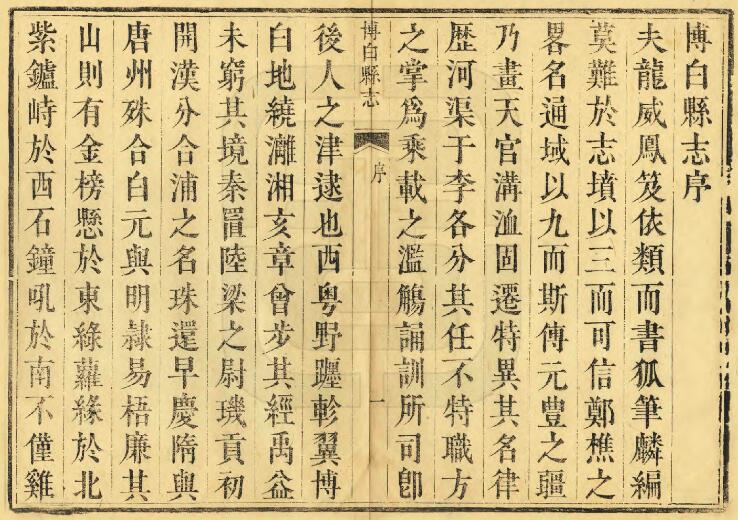 博白縣志序
夫龍威鳳笈依類而書狐筆麟編
莫難於志墳以三而可信鄭樵之
畧名通域以九而斯傳元豊之疆
乃畫天官溝洫固遷特異其名律
歴河渠于李各分其任不特職方
之掌爲乘載之濫觴誦訓所司卽
博白縣志
序
一
後人之津逮也西粤野躔軫翼博
白地繞灕湘亥章曾步其經禹益
未窮其境秦置陸梁之尉璣貢初
開漢分合浦之名珠還早慶隋與
唐州殊合白元與明隷易梧廉其
山則有金榜懸於東綠蘿緣於北
紫鑪峙於西石鐘吼於南不僅雞